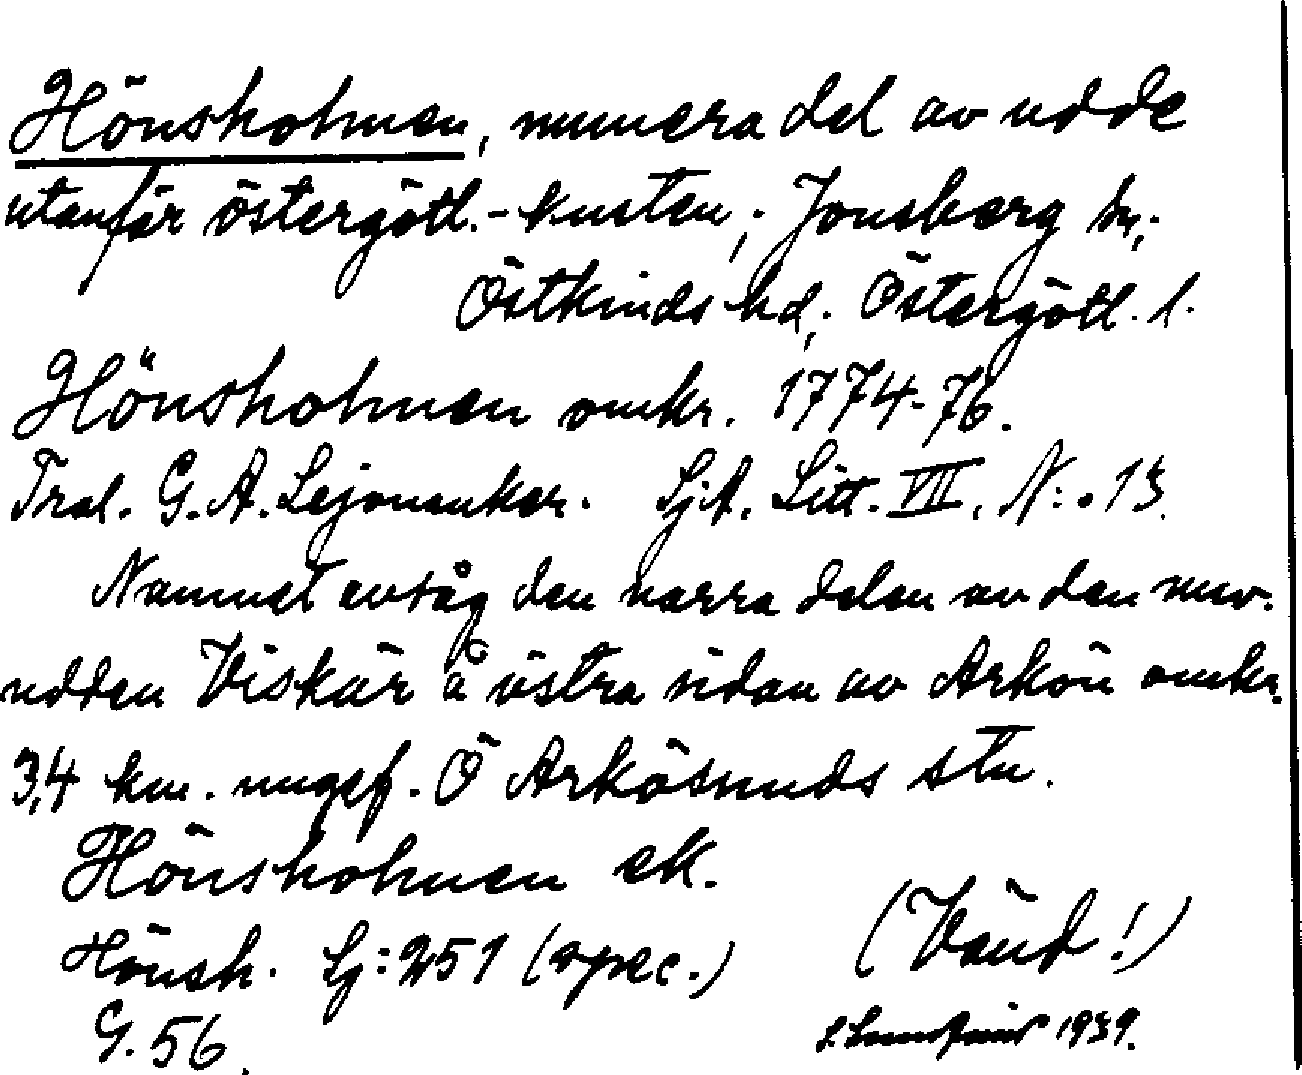 Hönsholmen, numera del av udde
utanför östergötl.-kusten; Jonsberg sn;
Östkinds hd; Östergötl. l.
Hönsholmen omkr. 1774-76.
Tral. G. A. Lejonanker. SjA. Litt. VII. N:o 13.
Namnet avsåg den norra delen av den nuv.
udden Viskär å östra sidan av Arkön omkr.
3,4 km. ungef. Ö Arkösunds stn.
Hönsholmen ek.
Hönsh. Sj: 251 (spec.)
(Vänd!)
G. 56.
1939.